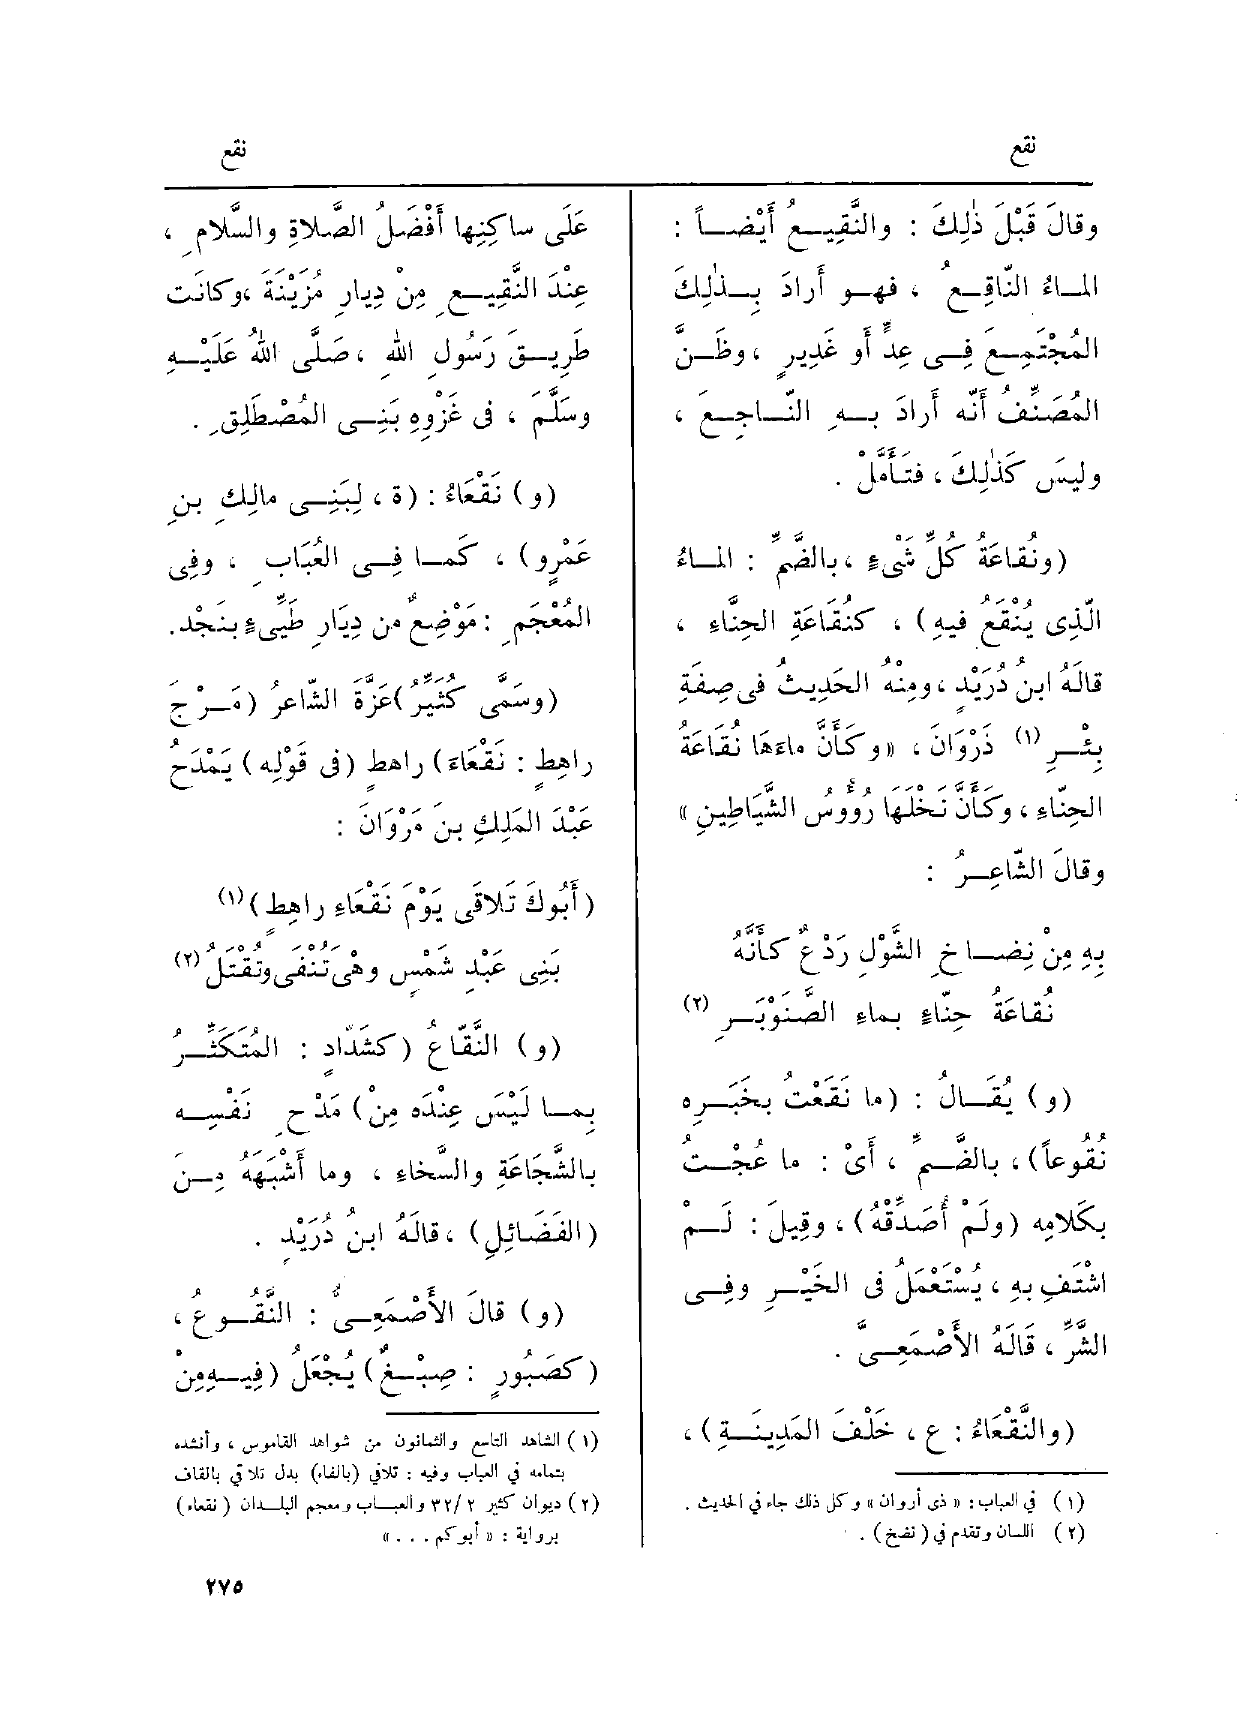 نقع
نقع
وقالَ قَبْلَ ذٰلِكَ : والنَّقِيـعُ أَيْضـاً :
المـاءُ النّاقِـعُ ، فهـو أَرادَ بِـذٰلِكَ
المُجْتَمِـعَ فِـى عِدٍّ أَو غَدِيرٍ ، وظَـنَّ
المُصَنِّفُ أَنّه أَرادَ بـه النّـاجِـعَ ،
وليسَ كَذٰلِكَ ، فتَأَمَّلْ .
(ونُقاعَةُ كُلِّ شْىءٍ ، بالضَّمِّ : المـاءُ
الَّذِى يُنْقَعُ فيهِ) ، كنُقَاعَةِ الحِنَّاءِ ،
قالَهُ ابنُ دُرَيْدٍ ، ومِنْهُ الحَدِيثُ فى صِفَةِ
بِئْـرِ (١) ذَرْوَانَ ، «وكَأَنَّ ماءَهَا نُقَاعَةُ
الحِنّاءِ ، وكَأَنَّ نَخْلَهَا رُؤُوسُ الشَّيَاطِينِ»
وقالَ الشّاعِـرُ :
بِهِ مِنْ نِضـاخِ الشَّوْلِ رَدْعٌ كَأَنَّهُ
نُقاعَةُ حِنّاءٍ بماءِ الصَّنَوْبَـرِ (٢)
(و) يُقَـالُ : (ما نَقَعْتُ بخَبَـرِه
نُقُوعاً) ، بالضَّـمِّ ، أَىْ : ما عُجْـتُ
بكَلامِه (ولَمْ أُصَدِّقْهُ) ، وقِيلَ : لَـمْ
اشْتَفِ بهِ ، يُسْتَعْمَلُ فى الخَيْـرِ وفِـى
الشَّرِّ ، قَالَهُ الأَصْمَعِـىَّ .
(والنَّقْعَاءُ : ع ، خَلْفَ المَدِينَـةِ) ،
(١) في العباب : «ذى أروان» وكل ذلك جاء في الحديث .
(٢) اللسان وتقدم في (نفخ) .
عَلَى ساكِنِها أَفْضَلُ الصَّلاةِ والسَّلامِ ،
عِنْدَ النَّقِيـعِ مِنْ دِيارِ مُزَيْنَةَ ،وكانَت
طَرِيـقَ رَسُولِ اللهِ ، صَلَّى اللهُ عَلَيْـهِ
وسَلَّم ، فى غَزْوِهِ بَنِـى المُصْطَلِقِ .
(و) نَقْعَاءُ : (ة ، لِبَنِـى مالِكِ بنِ
عَمْرٍو) ، كَمـا فِـى العُبَابِ ، وفِى
المُعْجَمِ : مَوْضِعٌ من دِيَارِ طَيِّىءٍ بنَجْد.
(وسَمَّى كُثَيِّرُ)عَزَّةَ الشّاعرُ (مَـرْجَ
راهِطٍ : نَقْعَاءَ) راهطٍ (فى قَوْلِه) يَمْدَحُ
عَبْدَ المَلِكِ بنَ مَرْوَانَ :
(أَبُوكَ تَلاقَى يَوْمَ نَقْعَاءِ راهِطٍ)(١)
بَنِى عَبْدِ شَمْسٍ وهْى تُنْفَى وتُقْتَلُ (٢)
(و) النَّقّاعُ (كشَدّادٍ : المُتَكَثِّـرُ
بِمـا لَيْسَ عِنْدَه مِنْ) مَدْحِ نَفْسِـه
بالشَّجَاعَةِ والسَّخاءِ ، وما أَشْبَهَهُ مِـنَ
(الفَضَائِلِ) ، قالَهُ ابنُ دُرَيْدٍ .
(و) قالَ الأَصْمَعِـىُّ : النَّقُـوعُ ،
(كصَبُورٍ : صِبْـغٌ) يُجْعَلُ (فِيـهِ مِنْ
(١) الشاهد التاسع والثمانون من شواهد القاموس ، وأنشده
بتمامه في العباب وفيه : تلافي (بالفاء) بدل تلاقي بالقاف
(٢) ديوان كثير ٢/ ٣٢ والعبـاب ومعجم البلـدان (نقعاء)
برواية : «أبوكم . . . »
٢٧٥